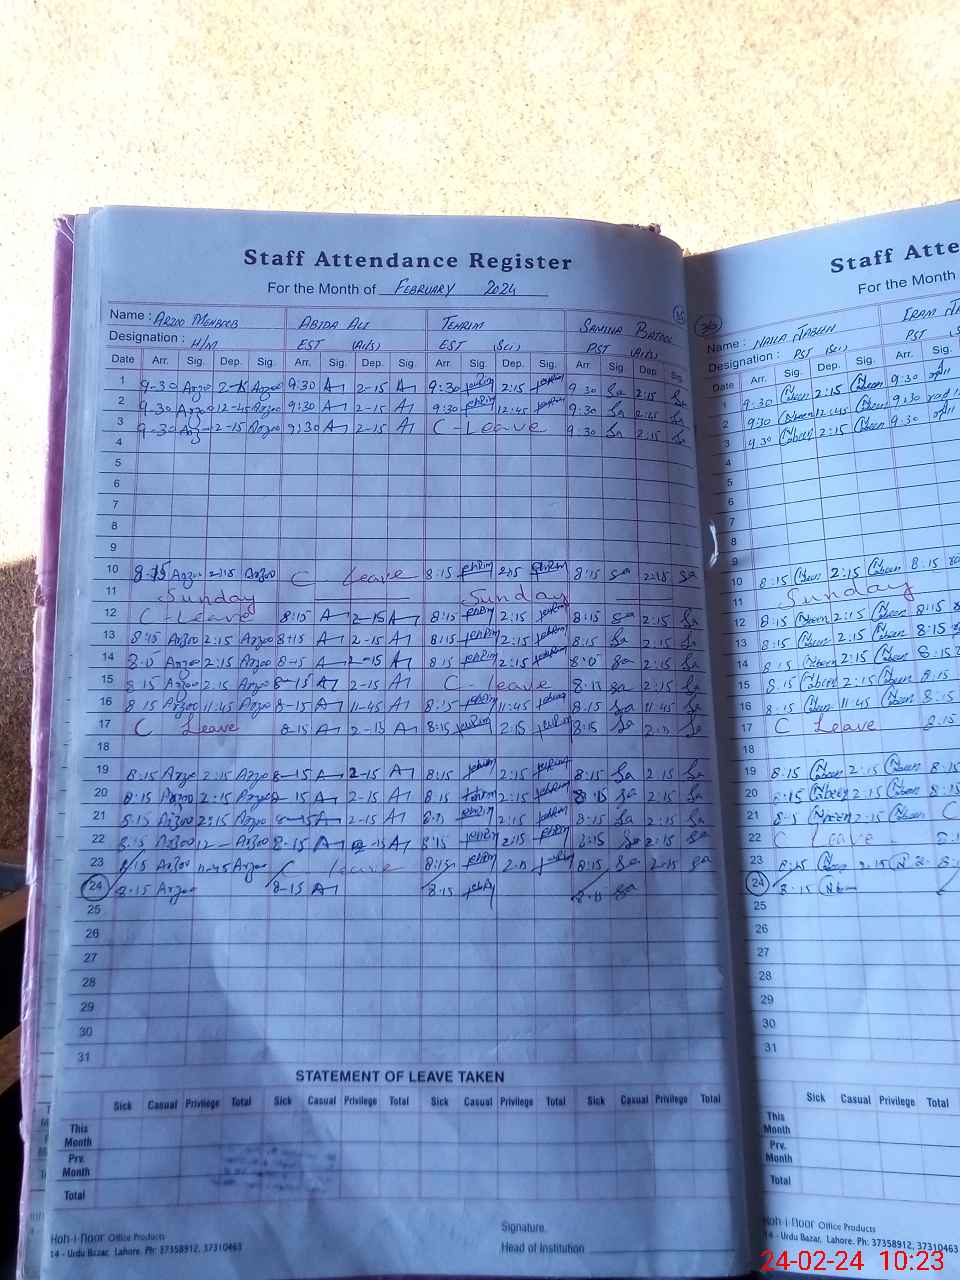 Staff Attendance Register
For the Month of FEBRUARY 2024
35
Name : ARZOO MEHBOOB ABIDA ALI TEHRIM SAMINA BATOOL
Designation : H/M EST (Arts) EST (Sci) PST (Arts)
Date Arr. Sig. Dep. Sig. Arr. Sig. Dep. Sig. Arr. Sig. Dep. Sig. Arr. Sig. Dep. Sig.
1 9-30 Arzoo 2-15 Arzoo 9:30 A 2-15 A 9:30 2:15 9 30 Sa 2:15 Sa
2 9-30 Arzoo 12-45 Arzoo 9:30 A 2-15 A 9:30 12:45 9:30 Sa 2:45 Sa
3 9-30 Arz 2-15 Arzoo 9:30 A 2-15 A C - Leave 9:30 Sa 2:15 Sa
4
5
6
7
8
9
10 8-15 Arzoo 2-15 Arzoo C - Leave 8:15 2:15 8:15 Sa 2:15 Sa
11 Sunday Sunday
12 C - Leave 8:15 A 2-15 A 8:15 2:15 8:15 Sa 2:15 Sa
13 8:15 Arzoo 2:15 Arzoo 8-15 A 2-15 A 8:15 2:15 8:15 Sa 2:15 Sa
14 Arzoo 2:15 Arzoo 8-15 A 2-15 A 8:15 2:15 Sa 2:15 Sa
15 8:15 Arzoo 2:15 Arzoo 8-15 A 2-15 A C - leave 8:15 Sa 2:15 Sa
16 8:15 Arzoo 11:45 Arzoo 8-15 A 11-45 A 8:15 11:45 8:15 Sa 11:45 Sa
17 C Leave 8-15 A 2-15 A 8:15 2:15 8:15 Sa 2:15 Sa
18
19 8:15 Arzoo 2:15 Arzoo 8-15 A 2-15 A 8:15 2:15 8:15 Sa 2:15 Sa
20 8:15 Arzoo 2:15 Arzoo 8-15 A 2-15 A 8:15 2:15 8:15 Sa 2:15 Sa
21 8:15 Arzoo 2:15 Arzoo 8-15 A 2-15 A 8:15 2:15 8:15 Sa 2:15 Sa
22 8:15 Arzoo 12- Arzoo 8-15 A 2-15 A 8:15 2:15 8:15 Sa 2:15 Sa
23 8:15 Arzoo 11-45 Arzoo C leave 8:15 2:15 8:15 Sa 2:15 Sa
24 8-15 Arzoo 8-15 A 8:15 Sa
25
26
27
28
29
30
31
STATEMENT OF LEAVE TAKEN
Sick Casual Privilege Total Sick Casual Privilege Total Sick Casual Privilege Total Sick Casual Privilege Total
This Month
Prv. Month
Total
Signature
Head of Institution
Koh-i-noor Office Products
14 - Urdu Bazar, Lahore. Ph: 37358912, 37310463
Staff Atte
For the Month
36
Name : NAILA JABEEN IRAM
Designation : PST (Sci) PST
Date Arr. Sig. Dep. Sig. Arr. Sig.
1 9:30 Nabeen 2:15 Nabeen 9:30
2 9:30 Nabeen 12:45 Nabeen 9:30
3 9:30 Nabeen 2:15 Nabeen 9:30
4
5
6
7
8
9
10 8:15 Nabeen 2:15 Nabeen 8:15
11 Sunday
12 8:15 Nabeen 2:15 Nabeen 8:15
13 8:15 Nabeen 2:15 Nabeen 8:15
14 8:15 Nabeen 2:15 Nabeen 8:15
15 8:15 Nabeen 2:15 Nabeen 8:15
16 8:15 Nabeen 11:45 Nabeen 8:15
17 C Leave 8:15
18
19 8:15 Nabeen 2:15 Nabeen 8:15
20 8:15 Nabeen 2:15 Nabeen 8:15
21 8:15 Nabeen 2:15 Nabeen C
22 C Leave
23 8:15 2:15 8:15
24 8:15
25
26
27
28
29
30
31
Sick Casual Privilege Total
This Month
Prv. Month
Total
Koh-i-noor Office Products
14 - Urdu Bazar, Lahore. Ph: 37358912, 3731
24-02-24 10:23